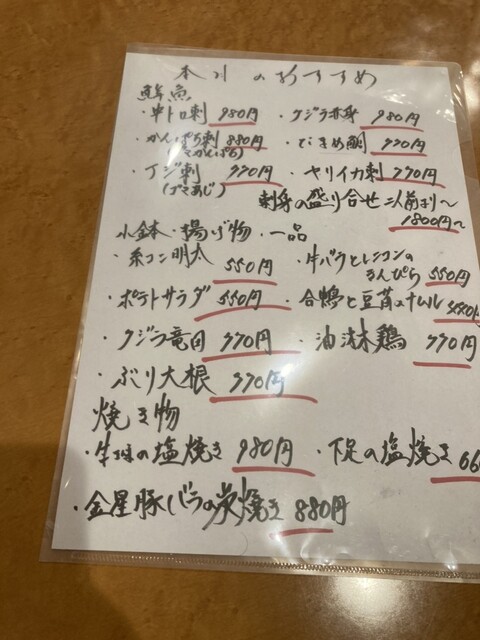 本日のおすすめ
鮮魚
・中トロ刺 980円 ・クジラ赤身 980円
・かんぱち刺 880円
・アジ刺 770円 ・ヤリイカ刺 770円
刺身の盛り合せ 二人前より〜
1800円〜
小鉢・揚げ物・一品
・糸コン明太 550円
・牛バラとレンコンの
きんぴら 550円
・ポテトサラダ 550円 ・合鴨と豆苗のナムル
・クジラ竜田 770円 ・油淋鶏 770円
・ぶり大根 770円
焼き物
の塩焼き 980円 ・下足の塩焼き 66
・金星豚バラの炭焼き 880円